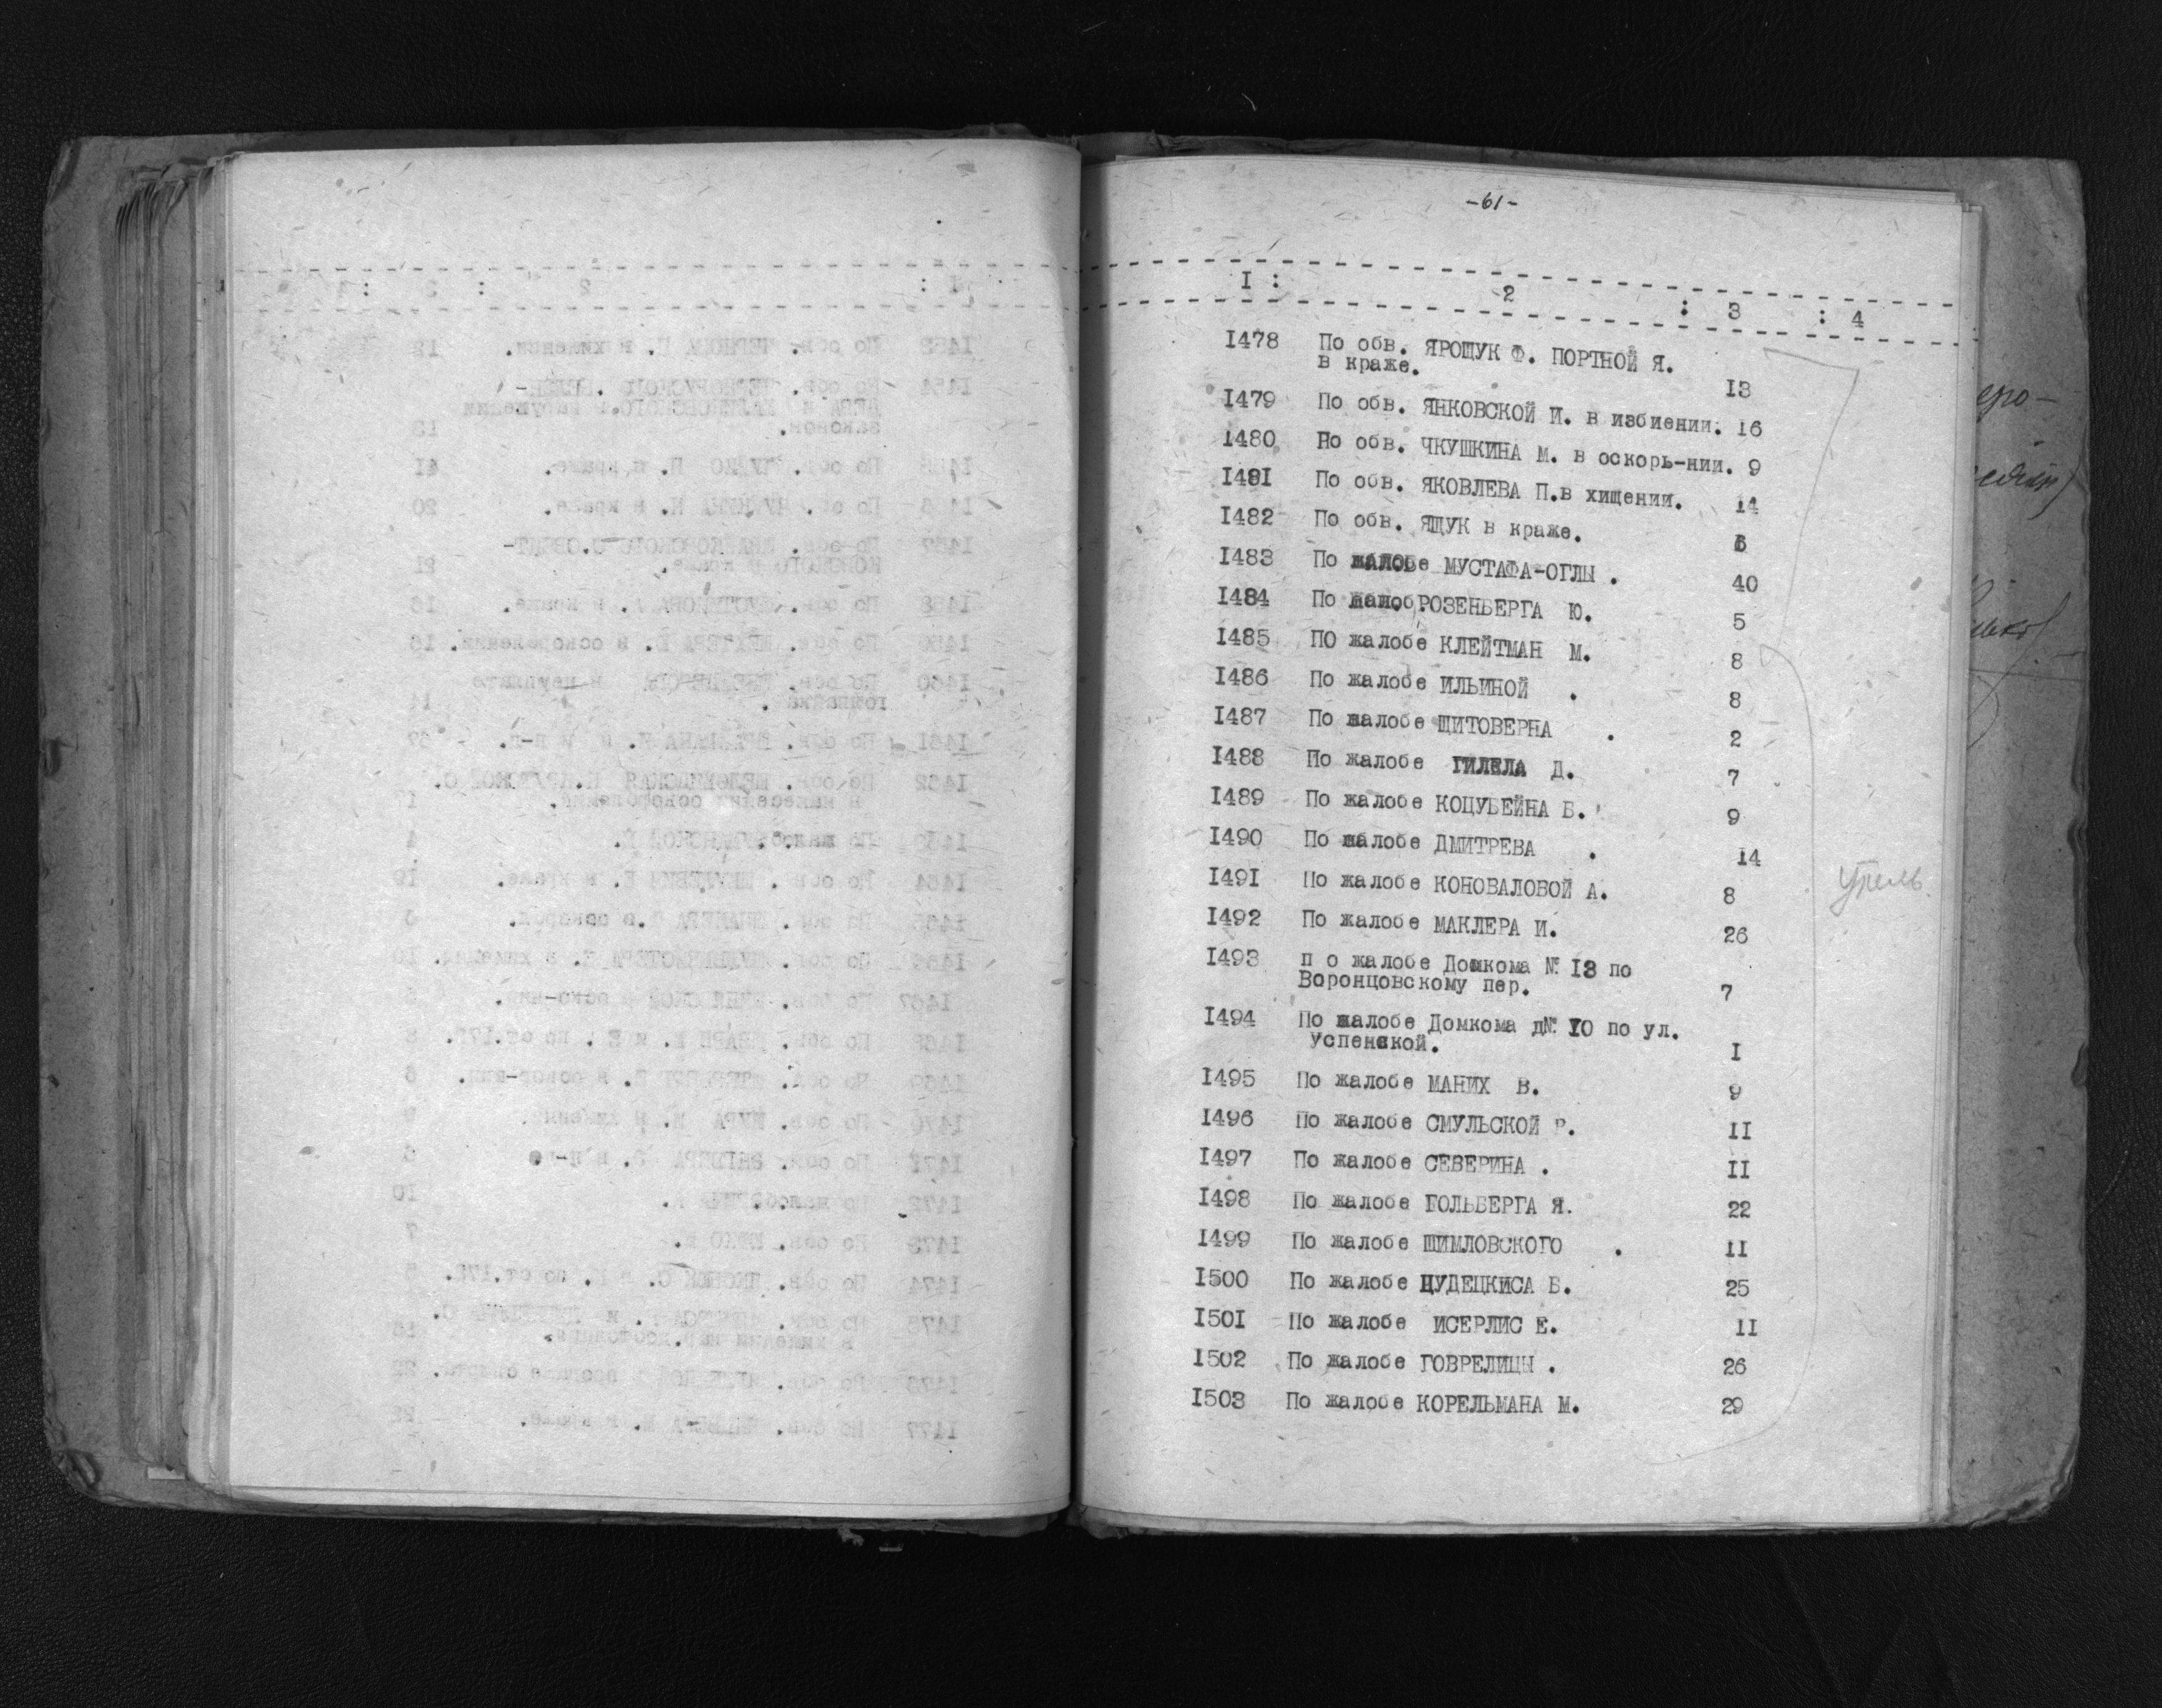 -61-
I : 2 : 3 : 4
I478 По обв. ЯРОЩУК Ф. ПОРТНОЙ Я.
в краже. I3
I479 По обв. ЯНКОВСКОЙ И. в избиении. I6
I480 По обв. ЧКУШКИНА М. в оскорь-нии. 9
I48I По обв. ЯКОВЛЕВА П.в хищении. I4
I482 По обв. ЯЩУК в краже. 6
I483 По жалобе МУСТАФА-ОГЛЫ . 40
I484 По жалоб РОЗЕНБЕРГА Ю. 5
I485 ПО жалобе КЛЕЙТМАН М. 8
I486 По жалобе ИЛЬИНОЙ . 8
I487 По жалобе ЩИТОВЕРНА . 2
I488 По жалобе ГИЛЕЛА Д. 7
I489 По жалобе КОЦУБЕЙНА Б. 9
I490 По жалобе ДМИТРЕВА . I4
I49I По жалобе КОНОВАЛОВОЙ А. 8
I492 По жалобе МАКЛЕРА И. 26
I493 п о жалобе Домкома № I3 по
Воронцовскому пер. 7
I494 По жалобе Домкома д№ I0 по ул.
Успенской. I
I495 По жалобе МАНИХ В. 9
I496 По жалобе СМУЛЬСКОЙ Р. II
I497 По жалобе СЕВЕРИНА . II
I498 По жалобе ГОЛЬБЕРГА Я. 22
I499 По жалобе ШИМЛОВСКОГО . II
I500 По жалобе ЦУДЕЦКИСА Б. 25
I50I По жалобе ИСЕРЛИС Е. II
I502 По жалобе ГОВРЕЛИЦЫ . 26
I503 По жалобе КОРЕЛЬМАНА М. 29